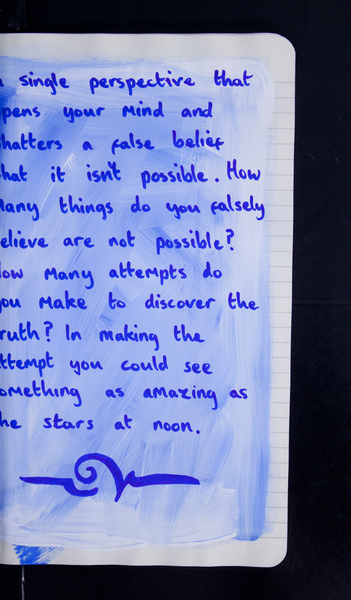 single perspective that
pens your mind and
hatters a false belief
hat it isn't possible. How
any things do you falsely
elieve are not possible?
ow many attempts do
ou make to discover the
ruth? In making the
ttempt you could see
omething as amazing as
he stars at noon.